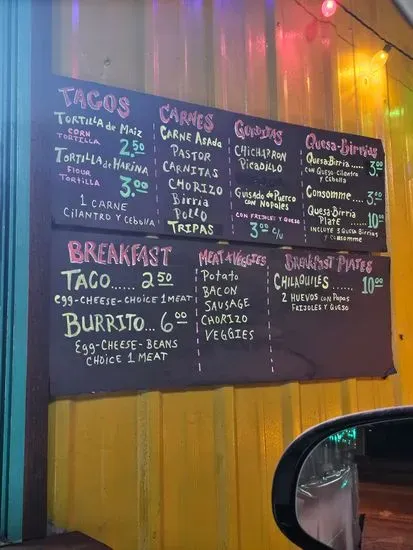 TACOS
TORTILLA de MAIZ
CORN TORTILLA
2.50
TORTILLA de HARINA
FLOUR TORTILLA
3.00
1 CARNE
CILANTRO Y CEBOLLA
CARNES
CARNE ASADA
PASTOR
CARNITAS
CHORIZO
BIRRIA
POLLO
TRIPAS
GORDITAS
CHICHARRON
PICADILLO
GUISADO de PUERCO
CON NOPALES
CON FRIJOLES Y QUESO
3.00 c/u
QUESA-BIRRIAS
QUESABIRRIA..... 3.00
CON QUESO CILANTRO
CEBOLLA
CONSOMME.... 3.00
QUESABIRRIA
PLATE ..... 10.00
INCLUYE 3 QUESA BIRRIAS
Y CONSOMME
BREAKFAST
TACO...... 2.50
EGG-CHEESE-CHOICE 1 MEAT
BURRITO... 6.00
EGG-CHEESE-BEANS
CHOICE 1 MEAT
MEAT & VEGGIES
POTATO
BACON
SAUSAGE
CHORIZO
VEGGIES
BREAKFAST PLATES
CHILAQUILES ..... 10.00
2 HUEVOS CON PAPAS
FRIJOLES Y QUESO